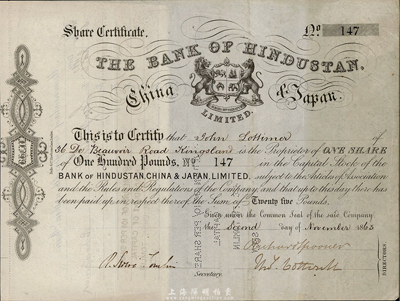 Share Certificate.
No 147
THE BANK OF HINDUSTAN.
China & Japan.
LIMITED.
This is to Certify that John Lottimer of
36 De Beauvoir Road Kingsland is the Proprietor of ONE SHARE
of One Hundred Pounds, No. 147 in the Capital Stock of the
BANK OF HINDUSTAN, CHINA & JAPAN, LIMITED, subject to the Articles of Association
and the Rules and Regulations of the Company, and that up to this day there has
been paid up in respect thereof the Sum of Twenty five Pounds.
Given under the Common Seal of the said Company
this Second day of November 1863
Secretary.
DIRECTORS
PER SHARE
CAPITAL